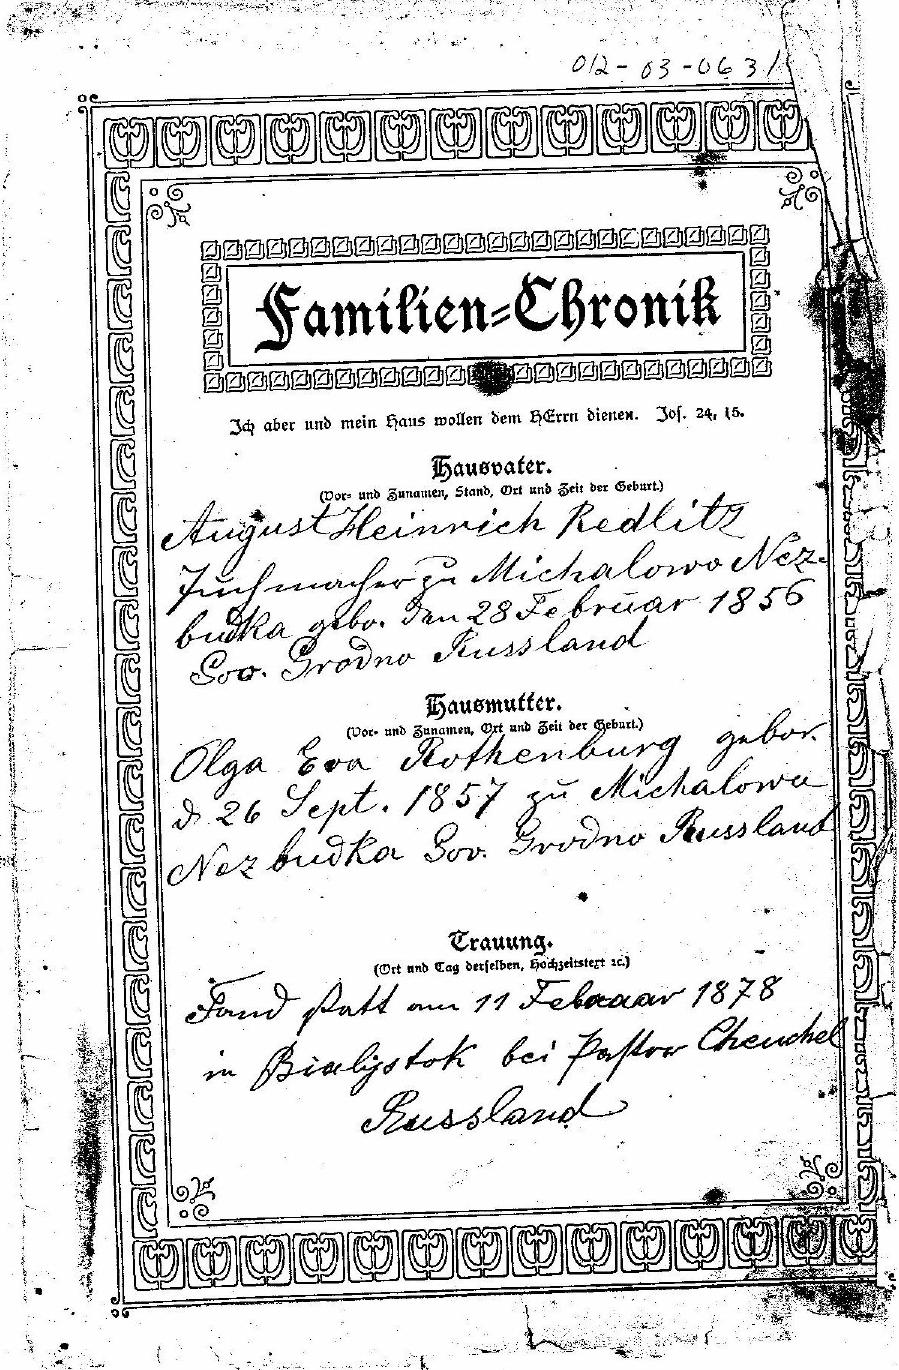 012-03-063/
Familien=Chronik
Ich aber und mein Haus wollen dem HErrn dienen. Jos. 24, 15.
Hausvater.
(Vor= und Zunamen, Stand, Ort und Zeit der Geburt.)
August Heinrich Redlitz
Tuchmacher zu Michalowo Nez-
budka gebo. den 28 Februar 1856
Gov. Grodno Russland
Hausmutter.
(Vor= und Zunamen, Ort und Zeit der Geburt.)
Olga Eva Rothenburg gebor.
d 26 Sept. 1857 zu Michalowo
Nezbudka Gov. Grodno Russland
Trauung.
(Ort und Tag derselben, Hochzeitstext ꝛc.)
Fand statt am 11 Februar 1878
in Bialystok bei Pastor
Russland